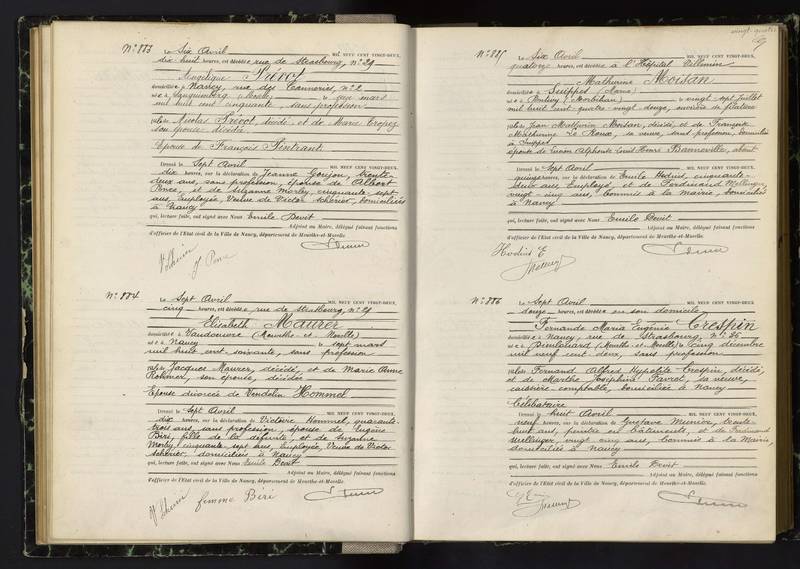 N° 883
Le Six Avril MIL NEUF CENT VINGT-DEUX,
dix huit heures, est décédée rue de Strasbourg, n° 29
Angélique Prévot
domiciliée à Nancy, rue des Tanneries, n° 2
née à Languimberg (Moselle) le onze mars
mil huit cent cinquante, sans profession
fille de Nicolas Prévot, décédé, et de Marie
son épouse décédée
Epouse de François
Dressé le Sept Avril MIL NEUF CENT VINGT-DEUX,
dix heures, sur la déclaration de Jeanne Goujon, trente-
deux ans, sans profession, épouse de Albert
et de Suzanne Morley, cinquante-sept
ans, Employée, Veuve de Victor Schérier, domiciliées
à Nancy
qui, lecture faite, ont signé avec Nous Emile Devit
Adjoint au Maire, délégué faisant fonctions
d'officier de l'Etat civil de la Ville de Nancy, département de Meurthe-et-Moselle.
N° 884
Le Sept Avril MIL NEUF CENT VINGT-DEUX,
cinq heures, est décédée rue de Strasbourg, n° 29
Elisabeth Maurer
domiciliée à Vandoeuvre (Meurthe et Moselle)
née à Nancy le sept mars
mil huit cent soixante, sans profession
fille de Jacques Maurer, décédé, et de Marie Anne
Rohmer, son épouse, décédée
Epouse divorcée de Vendelin Hommel
Dressé le Sept Avril MIL NEUF CENT VINGT-DEUX,
dix heures, sur la déclaration de Victoire Hommel, quarante-
trois ans, sans profession, épouse de Eugène
Béri, fille de la défunte, et de Suzanne
Morley, cinquante sept ans, Employée, Veuve de Victor
Schérier, domiciliées à Nancy
qui, lecture faite, ont signé avec Nous Emile Devit
Adjoint au Maire, délégué faisant fonctions
d'officier de l'Etat civil de la Ville de Nancy, département de Meurthe-et-Moselle.
femme Béri
vingt-quatre
N° 885
Le Six Avril MIL NEUF CENT VINGT-DEUX,
quatorze heures, est décédée à l'Hôpital Villemin
Mathurine Moisan
domiciliée à Suippes (Marne)
née à Pontivy (Morbihan) le vingt-sept Juillet
mil huit cent quatre-vingt douze, ouvrière de filature
fille de Jean Mathurin Moisan, décédé, et de Françoise
Mathurine Le Roux, sa veuve, sans profession, domiciliée
à Suippes
épouse de Lucien Alphonse Louis Henri Banneville, absent
Dressé le Sept Avril MIL NEUF CENT VINGT-DEUX,
quinze heures, sur la déclaration de Emile Hodius, cinquante-
deux ans Employé, et de Ferdinand Mellinger,
vingt-cinq ans, Commis à la Mairie, domiciliés
à Nancy
qui, lecture faite, ont signé avec Nous Emile Devit
Adjoint au Maire, délégué faisant fonctions
d'officier de l'Etat civil de la Ville de Nancy, département de Meurthe-et-Moselle.
Hodius E
N° 886
Le Sept Avril MIL NEUF CENT VINGT-DEUX,
douze heures, est décédée en son domicile
Fernande Maria Eugénie Crespin
domiciliée à Nancy, rue de Strasbourg, n° 35
née à Dieulouard (Meurthe et Moselle) le cinq décembre
mil neuf cent deux, sans profession
fille de Fernand Alfred Hypolite Crespin, décédé,
et de Marthe Joséphine Favrot, sa veuve,
caissière-comptable, domiciliée à Nancy
Célibataire
Dressé le huit Avril MIL NEUF CENT VINGT-DEUX,
neuf heures, sur la déclaration de Gustave Munier, trente
huit ans, peintre en bâtiments, et de Ferdinand
Mellinger, vingt-cinq ans, Commis à la Mairie,
domiciliés à Nancy
qui, lecture faite, ont signé avec Nous Emile Devit
Adjoint au Maire, délégué faisant fonctions
d'officier de l'Etat civil de la Ville de Nancy, département de Meurthe-et-Moselle.